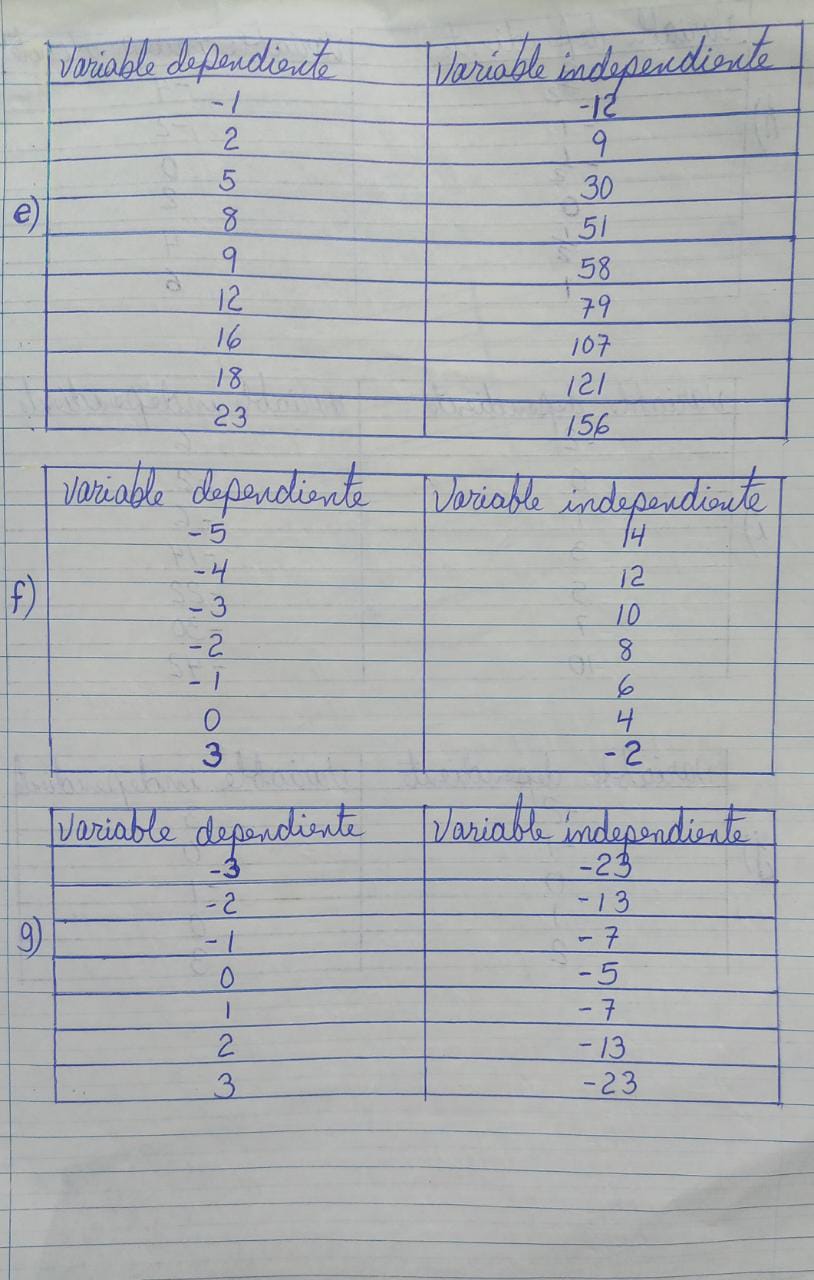 Variable dependiente Variable independiente
-1 -12
2 9
5 30
e)
8 51
9 58
12 79
16 107
18 121
23 156
Variable dependiente Variable independiente
-5 14
-4 12
f)
-3 10
-2 8
-1 6
0 4
3 -2
Variable dependiente Variable independiente
-3 -23
-2 -13
g)
-1 -7
0 -5
1 -7
2 -13
3 -23